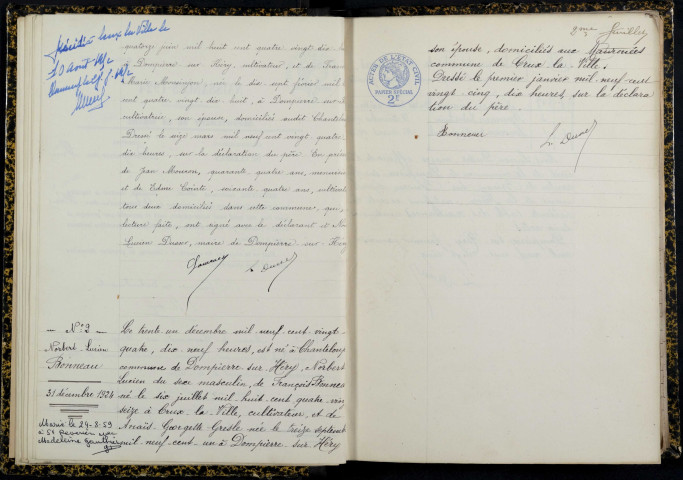 quatorze juin mil huit cent quatre vingt dix
à Dompierre sur Héry, cultivateur, et de
Marie née le dix sept février mil
cent quatre vingt dix huit, à Dompierre-sur-
cultivatrice, son épouse, domiciliés audit Chanteloup
Dressé le seize mars mil neuf cent vingt quatre
dix heures, sur la déclaration du père. En
de Jean quarante quatre ans,
et de Cointe, soixante quatre ans,
tous deux domiciliés dans cette commune, qui,
lecture faite, ont signé avec le déclarant et
Lucien Duret, maire de Dompierre-sur-Héry
L. Duret
— N° 2 —
Norbert-Lucien
Bonneau
31 décembre 1924
Marié le 29-8-59
à St
Madeleine
Le trente un décembre mil neuf cent vingt-
quatre, dix-neuf heures, est né à Chanteloup
commune de Dompierre-sur-Héry, Norbert
Lucien du sexe masculin, de François Bonneau
né le six juillet mil huit cent quatre-vingt
seize à Crux-la-Ville, cultivateur, et de
Anaïs Georgette Gresle née le treize septembre
mil neuf cent un à Dompierre sur Héry
2me feuillet
ACTES DE L'ÉTAT CIVIL
PAPIER SPÉCIAL
2F
son épouse, domiciliés aux
commune de Crux-la-Ville.
Dressé le premier janvier mil-neuf-cent
vingt cinq, dix heures sur la déclara
tion du père.
Bonneau
L. Duret